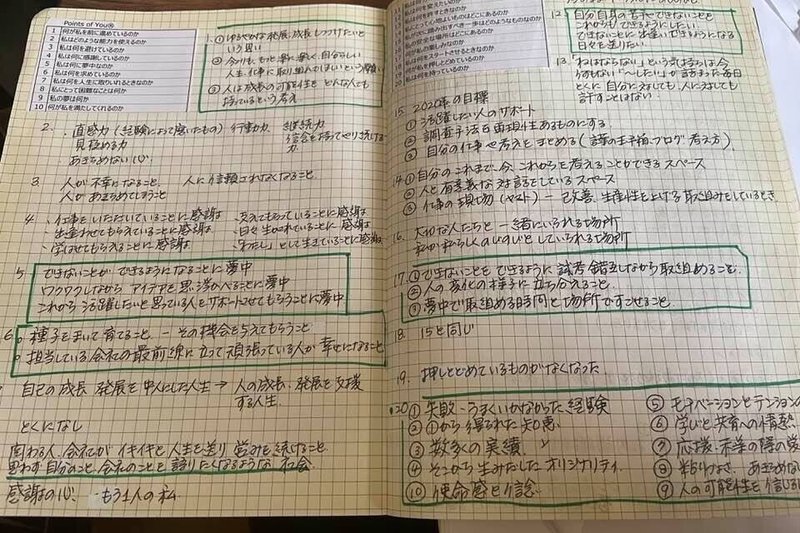 Points of You®
1 何が私を前に進めているのか
2 私はどのような能力を使えるのか
3 私は何を避けているのか
4 私は何に感謝しているのか
5 私は何に夢中なのか
6 私は何を求めているのか
7 私は何を人生に取り入れるときなのか
8 私にとって困難なことは何か
9 私の夢は何か
10 何が私を満たしてくれるのか
1. ① ゆるやかな発展、成長しつづけたいと
いう思い
② 今よりも、もっと
人生、仕事に取り組んでほしいという
③ 人は成長の可能性をどんな人でも
持っているという考え
2. ・直感力(経験によって磨いたもの) 行動力 継続力
見極める力 信念を持ってやり続ける
あきらめない心 力
3. 人が不幸になること、 人に信頼されなくなること
人があきらめてしまうこと
4. ・仕事をいただいていることに感謝 ・支えてもらっていることに感謝
・出逢わせてもらえていることに感謝 ・日々生かされていることに感謝
・学ばせてもらえることに感謝 ・「わたし」として生きていることに感謝
5. できないことができるようになることに夢中
ワクワクしながらアイデアを思い浮かべることに夢中
これから活躍したいと思っている人をサポートさせてもらうことに夢中
6. 種子をまいて育てること ー その機会を与えてもらうこと
担当している会社の最前線に立って頑張っている人が幸せになること
自己の成長、発展を中心にした人生 → 人の成長、発展を支援
する人生
とくになし
関わる人、会社がイキイキと人生を送り営みを続けること
思わず自分のこと、会社のことを語りたくなるような社会
感謝の心 もう1人の私
12. 自分自身の苦手やできないことを
これからもできるようにしたい
できないことに出逢いできるようになる
日々を送りたい
13. 「ねばならない」という
とくに自分に対しても、人に対しても
許すことはない
15. 2020年の目標
① 活躍したい人のサポート
② 調査手法を再現性あるものにする
③ 自分の仕事や考えをまとめる
14. ① 自分のこれまで、今、これからを考えることができるスペース
② 人と有意義な対話をしているスペース
③ 仕事の現場 ー 改善、生産性を上げる取り組みをしているとき
16. 大切な人たちと一緒にいられる場所
私が私らしくのびのびとしていられる場所
17. ① できないことをできるように試行錯誤しながら取組めること
② 人の変化の様子に立ち会えること
③ 夢中で取組める時間と場所ですごせること
18. 15と同じ
19. 押しとどめているものがなくなった
20. ① 失敗・うまくいかなかった経験
② ①から得られた知恵
③ 数多の実績
④ そこから生みだしたオリジナリティ
⑩ 使命感と信念
⑤ モチベーションとテンションの
⑥ 学びと共育への情熱
⑦ 応援
⑧ あきらめな
⑨ 人の可能性を信じる